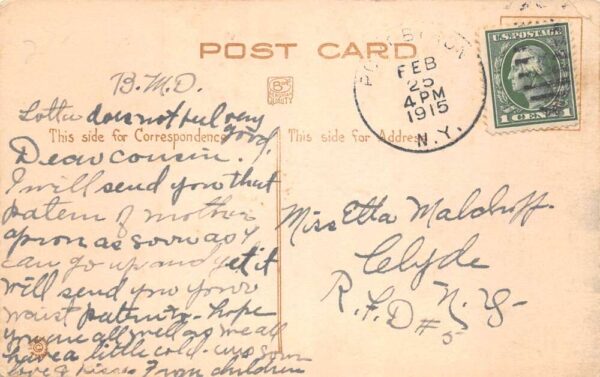 POST CARD
B.M.D.
Lotta does not feel very
good
This side for Correspondence
This side for Address
Dear cousin.
I will send you that
patern of mother
apron as soon as I
can go up and get it
will send you your
waist patering. hope
you are all well as we all
have a little cold. ans soon
love & kisses From children
FEB
25
4 PM
1915
N.Y.
U.S. POSTAGE
1 CENT 1
QUALITY
Miss Etta
Clyde
N.Y.
R.F.D #5